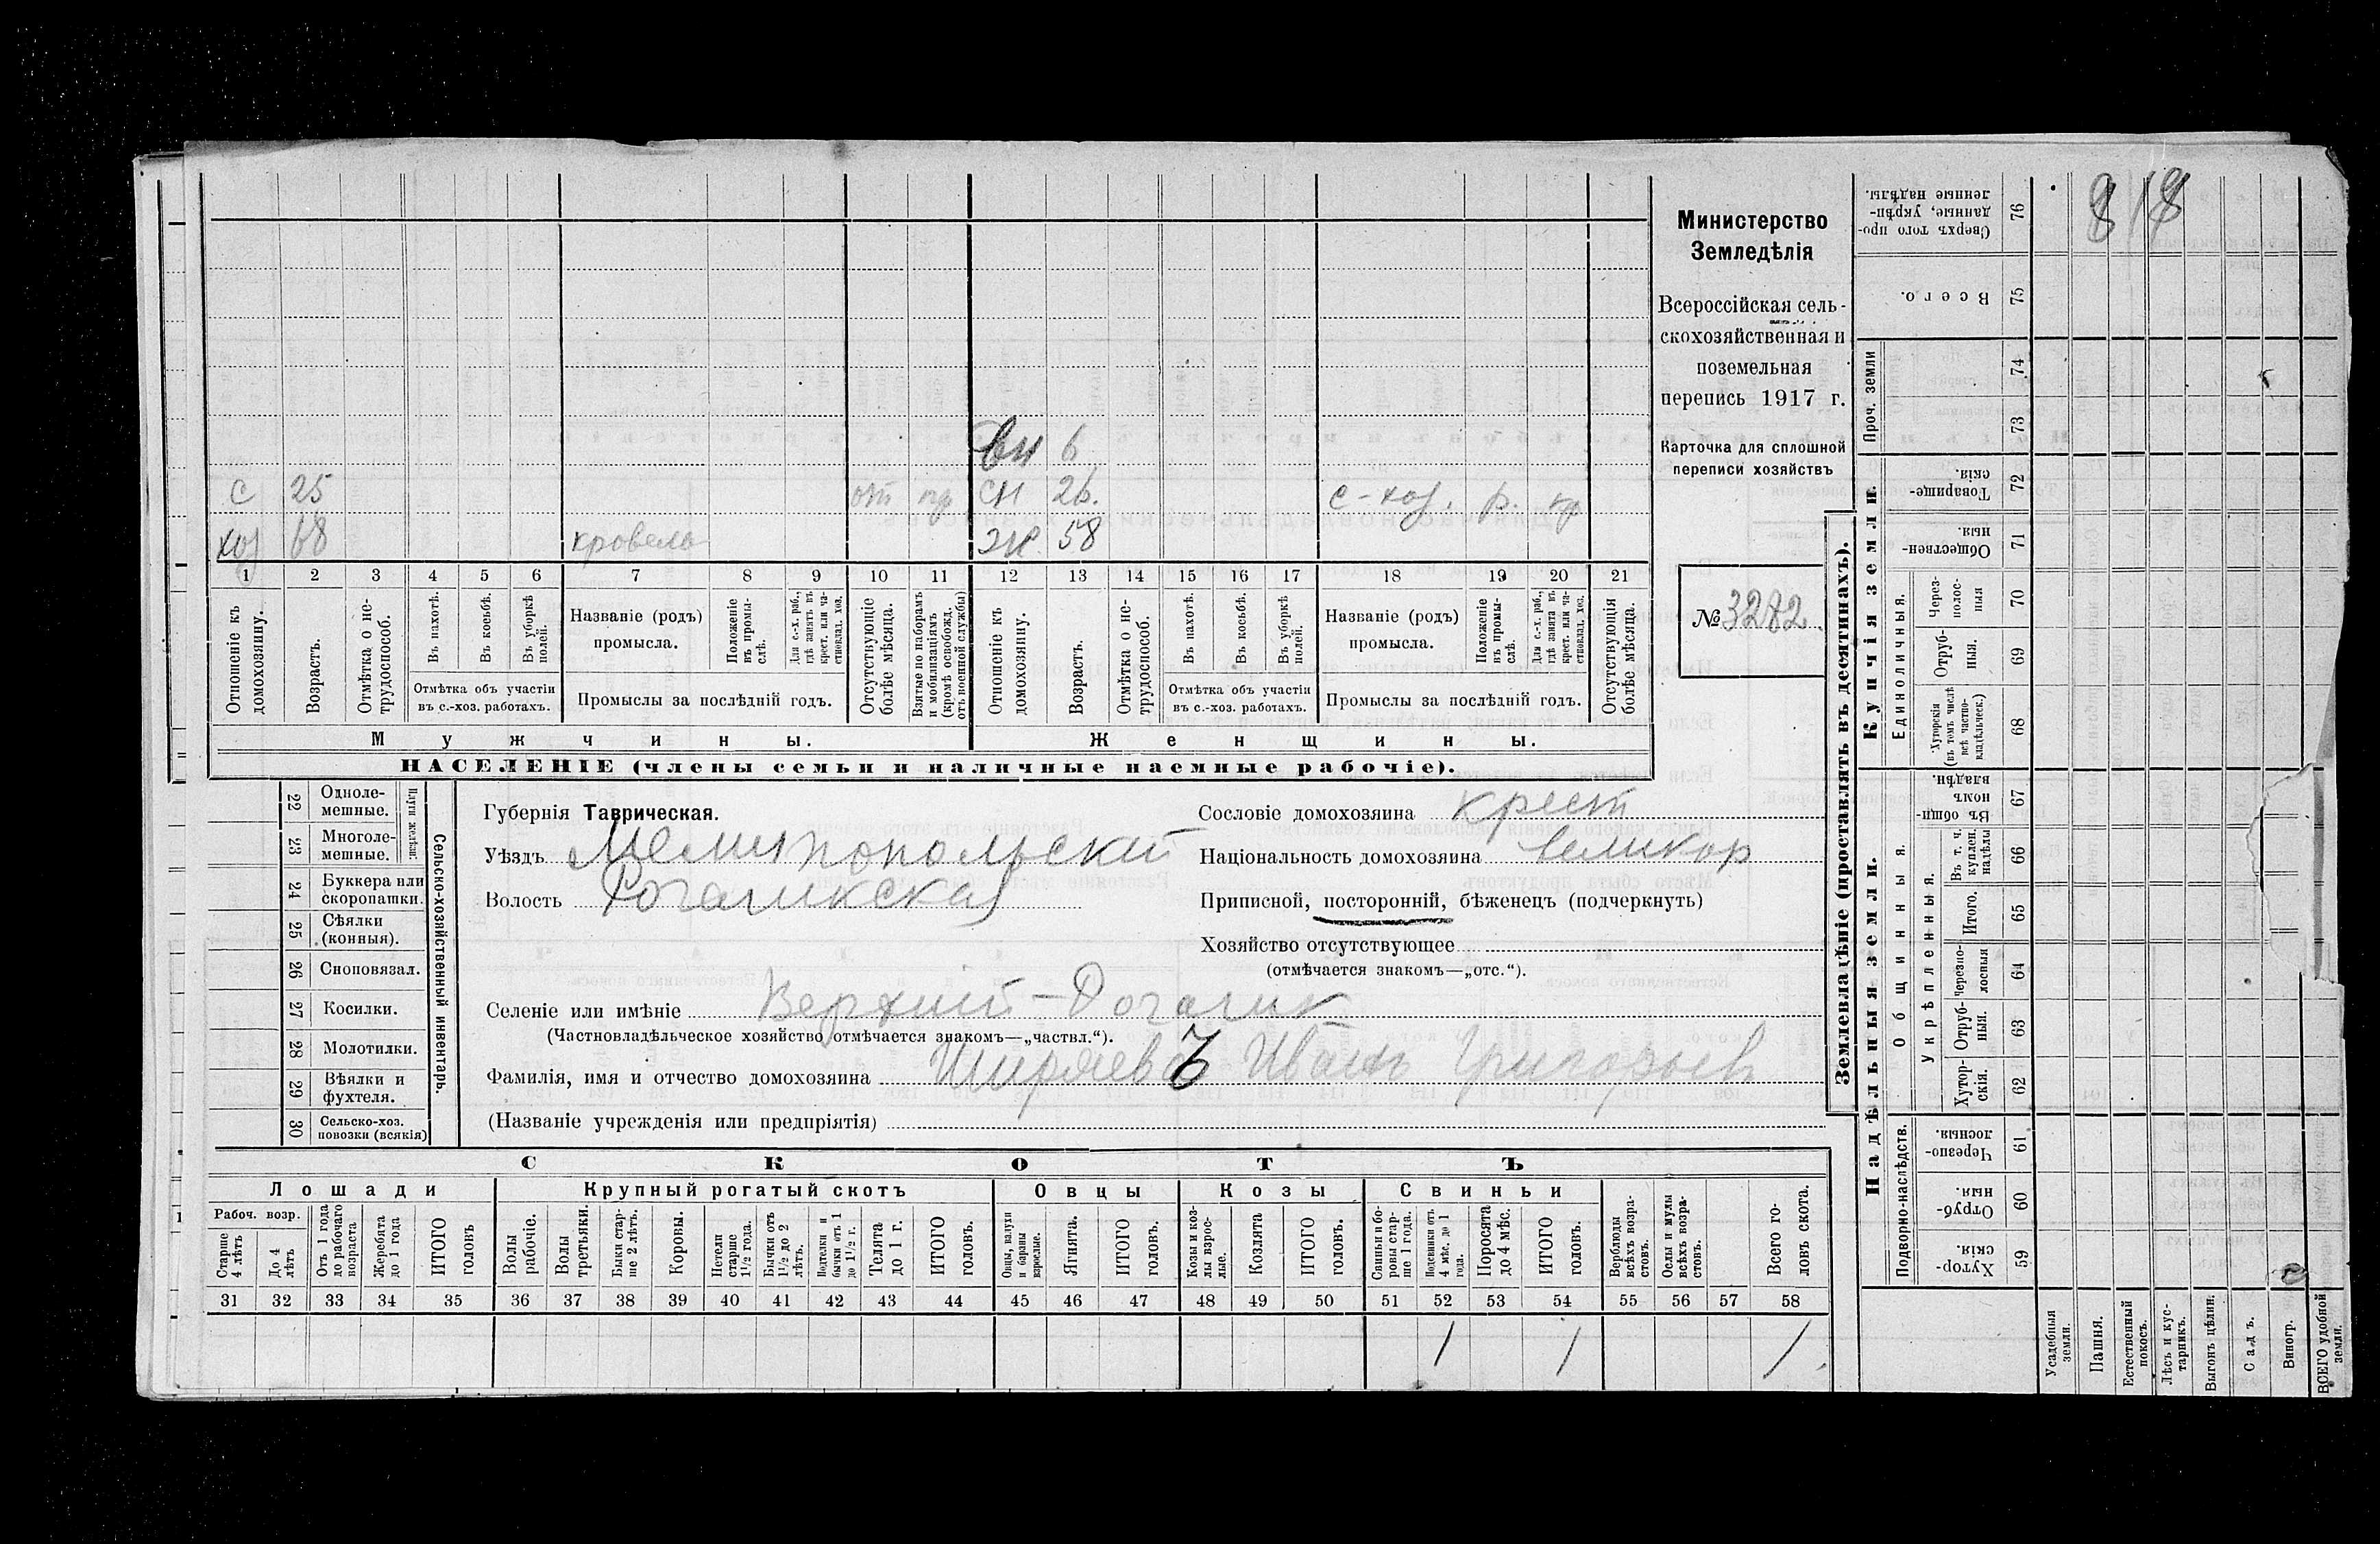 вн 6
с 25 от пр сн 26. с-хоз. р. кр
хоз 68 кровела ж. 58
1 2 3 4 5 6 7 8 9 10 11 12 13 14 15 16 17 18 19 20 21
Отношеніе къ домохозяину.
Возрастъ.
Отмѣтка о не-
трудоспособ.
Въ пахотѣ.
Въ косьбѣ.
Въ уборкѣ
полей.
Отмѣтка объ участіи
въ с.-хоз. работахъ.
Названіе (родъ)
промысла.
Положеніе
въ промы-
слѣ.
Для с.-х. раб.,
гдѣ занятъ въ
крест. или ча-
ствовлад. хоз.
Промыслы за послѣдній годъ.
Отсутствующіе
болѣе мѣсяца.
Взятые по наборамъ
и мобилизаціямъ
(кромѣ освобожд.
отъ военной службы)
Отношеніе къ
домохозяину.
Возрастъ.
Отмѣтка о не-
трудоспособ.
Въ пахотѣ.
Въ косьбѣ.
Въ уборкѣ
полей.
Отмѣтка объ участіи
въ с.-хоз. работахъ.
Названіе (родъ)
промысла.
Положеніе
въ промы-
слѣ.
Для с.-х. раб.,
гдѣ занята въ
крест. или ча-
ствовлад. хоз.
Промыслы за послѣдній годъ.
Отсутствующія
болѣе мѣсяца.
Мужчины.
Женщины.
НАСЕЛЕНІЕ (члены семьи и наличные наемные рабочіе).
Министерство
Земледѣлія
Всероссійская сель-
скохозяйственная и
поземельная
перепись 1917 г.
Карточка для сплошной
переписи хозяйствъ
№ 3282.
22 Одноле-
мешные.
23 Многоле-
мешные.
Плуги желѣзн.
24 Буккера или
скоропашки.
25 Сѣялки
(конныя).
26 Сноповязал.
27 Косилки.
28 Молотилки.
29 Вѣялки и
фухтеля.
30 Сельско-хоз.
повозки (всякія)
Сельско-хозяйственный инвентарь.
Губернія Таврическая.
Уѣздъ Мелитопольскій
Волость Рогачикская
Сословіе домохозяина крест
Національность домохозяина великор
Приписной, посторонній, бѣженецъ (подчеркнуть)
Хозяйство отсутствующее
(отмѣчается знакомъ—„отс.“).
Селеніе или имѣніе Верхній-Рогачик
(Частновладѣльческое хозяйство отмѣчается знакомъ—„частвл.“).
Фамилія, имя и отчество домохозяина Ширяевъ Иванъ Григорьев
(Названіе учрежденія или предпріятія)
СКОТЪ
Лошади
Крупный рогатый скотъ
Овцы
Козы
Свиньи
Рабоч. возр.
Старше
4 лѣтъ
До 4
лѣтъ
Отъ 1 года
до рабочаго
возраста
Жеребята
до 1 года
ИТОГО
головъ
Волы
рабочіе.
Волы
третьяки.
Быки стар-
ше 2 лѣтъ.
Коровы.
Нетели
старше
1½ года.
Бычки отъ
1½ до 2
лѣтъ.
Подтелки и
бычки отъ 1
до 1½ г.
Телята
до 1 г.
ИТОГО
головъ.
Овцы, валухи
и бараны
взрослые.
Ягнята.
ИТОГО
головъ.
Козы и коз-
лы взрос-
лые.
Козлята
ИТОГО
головъ.
Свиньи и бо-
ровы стар-
ше 1 года.
Подсвинки отъ
4 мѣс. до 1
года.
Поросята
до 4 мѣс.
ИТОГО
головъ.
Верблюды
всѣхъ возра-
стовъ.
Ослы и мулы
всѣхъ возра-
стовъ.
Всего го-
ловъ скота.
31 32 33 34 35 36 37 38 39 40 41 42 43 44 45 46 47 48 49 50 51 52 53 54 55 56 57 58
1 1 1.
Землевладѣніе (проставлять въ десятинахъ).
Купчія земли.
Надѣльныя земли.
Проч. земли
Единоличныя.
Общинныя.
Укрѣпленныя.
Подворно-наслѣдств.
Сверхъ того про-
данные, укрѣп-
ленные надѣлы. 76
Всего. 75
74
73
Товарище-
скія. 72
Обществен-
ныя. 71
Через-
полос-
ныя 70
Отруб-
ныя. 69
Хуторскія
(въ томъ числѣ
всѣ частно-
владѣльческ.) 68
Въ общи-
номъ
владѣн. 67
Въ т. ч.
куплен.
надѣлы 66
Итого. 65
Черезпо-
лосныя 64
Отруб-
ныя. 63
Хутор-
скія. 62
Черезпо-
лосныя. 61
Отруб-
ныя. 60
Хутор-
скія. 59
Усадебныя
земли.
Пашня.
Естественный
покосъ.
Лѣсъ и кус-
тарникъ.
Выгонъ цѣлин.
Садъ.
Виногр.
ВСЕГО удобной
земли.